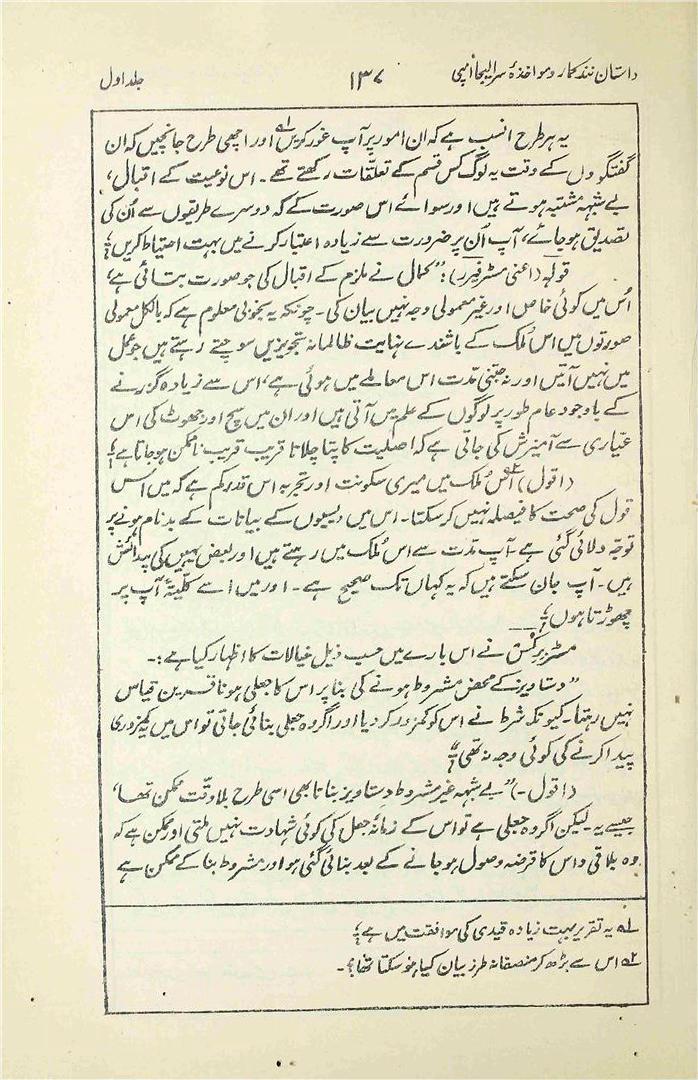 داستان نند کمار و مواخذۂ سر الیجا امپی
۱۳۷
جلد اول
یہ ہر طرح انسب ہے کہ ان امور پر آپ غور کریں۱؎ اور اچھی طرح جانچیں کہ ان
گفتگوؤں کے وقت یہ لوگ کس قسم کے تعلقات رکھتے تھے۔ اس نوعیت کے اقبال،
بے شبہہ مشتبہ ہوتے ہیں اور سوائے اس صورت کے کہ دوسرے طریقوں سے اُن کی
تصدیق ہوجائے، آپ اُن پر ضرورت سے زیادہ اعتبار کرنے میں بہت احتیاط کریں؛
قولہ (اعنی مسٹر فیرر): "کمال نے ملزم کے اقبال کی جو صورت بتائی ہے،
اُس میں کوئی خاص اور غیر معمولی وجہ نہیں بیان کی۔ چونکہ یہ بخوبی معلوم ہے کہ بالکل معمولی
صورتوں میں اس ملک کے باشندے نہایت ظالمانہ تجویزیں سوچتے رہتے ہیں جو عمل
میں نہیں آتیں اور نہ جتنی مدت اس معاملے میں ہوئی ہے، اس سے زیادہ گزرنے
کے باوجود عام طور پر لوگوں کے علم میں آتی ہیں اور ان میں سچ اور جھوٹ کی اس
عیّاری سے آمیزش کی جاتی ہے کہ اصلیت کا پتا چلانا قریب قریب ناممکن ہوجاتا ہے؛
(اقول) "اُس۲؎ ملک میں میری سکونت اور تجربہ اس قدر کم ہے کہ میں اس
قول کی صحت کا فیصلہ نہیں کرسکتا۔ اس میں دیسیوں کے بیانات کے بدنام ہونے پر
توجہ دلائی گئی ہے۔ آپ مدت سے اس ملک میں رہتے ہیں اور بعض یہیں کی پیدائش
ہیں۔ آپ جان سکتے ہیں کہ یہ کہاں تک صحیح ہے۔ اور میں اسے کلیۃً آپ پر
چھوڑتا ہوں؛
مسٹر برکس نے اس بارے میں حسب ذیل خیالات کا اظہار کیا ہے:۔
"دستاویز کے محض مشروط ہونے کی بنا پر اس کا جعلی ہونا قرین قیاس
نہیں رہتا۔ کیونکہ شرط نے اس کو کمزور کردیا اور اگر وہ جعلی بنائی جاتی تو اس میں یہ کمزوری
پیدا کرنے کی کوئی وجہ نہ تھی؛"
(اقول۔) "بے شبہہ غیر مشروط دستاویز بنانا بھی اسی طرح بلا وقّت ممکن تھا،
جیسے یہ۔ لیکن اگر وہ جعلی ہے تو اس کے زمانۂ جعل کی کوئی شہادت نہیں ملتی اور ممکن ہے کہ
وہ بلاقی داس کا قرضہ وصول ہوجانے کے بعد بنائی گئی ہو اور مشروط بنا کے ممکن ہے
۱؎ یہ تقریر بہت زیادہ قیدی کی موافقت میں ہے؛
۲؎ اس سے بڑھ کر منصفانہ طرز بیان کیا ہوسکتا تھا؟۔